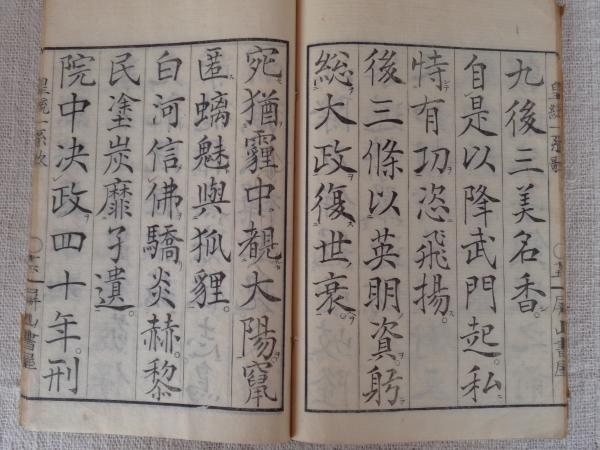 九後三美名香。
自是以降武門起。私
恃有功恣飛揚。
後三條以英明資。躬
総大政復世衰。
宛猶霾中覩大陽。竄
匿螭魅與狐貍。
白河信佛驕炎赫。黎
民塗炭靡孑遺。
院中决政四十年。刑
皇統一系歌
屏山書屋